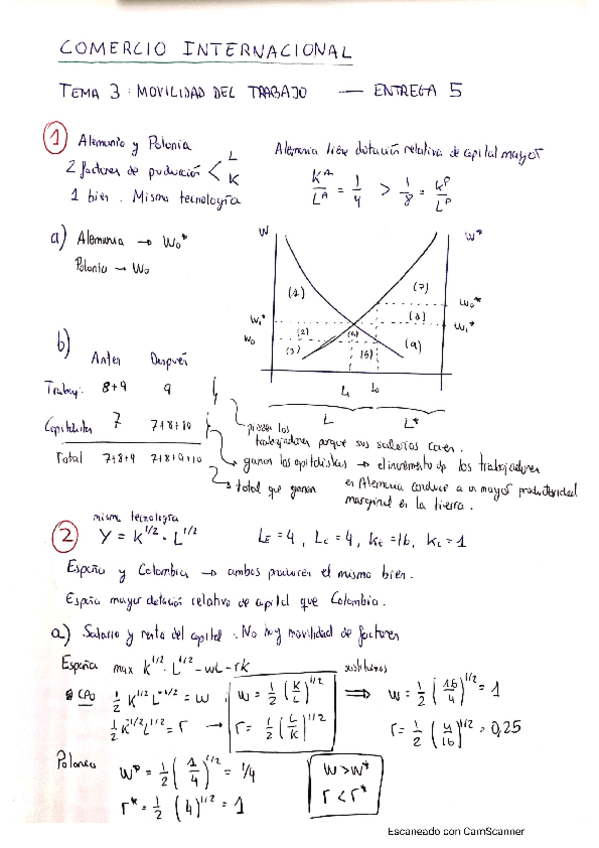 COMERCIO INTERNACIONAL
TEMA 3: MOVILIDAD DEL TRABAJO — ENTREGA 5
① Alemania y Polonia
2 factores de producción < L K
1 bien. Misma tecnología
Alemania tiene dotación relativa de capital mayor
K^A/L^A = 1/4 > 1/8 = K^P/L^P
a) Alemania → W0*
Polonia → W0
W W*
(1) (7)
W0*
W1* (2) (6) (8) W1*
W0 (3) (5) (9)
L1 L0
L L*
b) Antes Después
Trabaj: 8+9 9
Capitalistas 7 7+8+10
Total 7+8+9 7+8+9+10
pierden los
trabajadores porque sus salarios caen.
ganan los capitalistas → el incremento de los trabajadores
en Alemania conduce a un mayor productividad
marginal en la tierra.
total que ganan
misma tecnología
② Y = K^1/2 · L^1/2 LE = 4, LC = 4, KE = 16, KC = 1
España y Colombia → ambos producen el mismo bien.
España mayor dotación relativa de capital que Colombia.
a) Salario y renta del capital. No hay movilidad de factores
España max K^1/2 · L^1/2 - wL - rK
CPO 1/2 K^1/2 L^-1/2 = w
1/2 K^-1/2 L^1/2 = r →
w = 1/2 (K/L)^1/2
r = 1/2 (L/K)^1/2
sustituimos
⇒ w = 1/2 (16/4)^1/2 = 1
r = 1/2 (4/16)^1/2 = 0,25
Polonia w* = 1/2 (1/4)^1/2 = 1/4
r* = 1/2 (4)^1/2 = 1
w > w*
r < r*
Escaneado con CamScanner